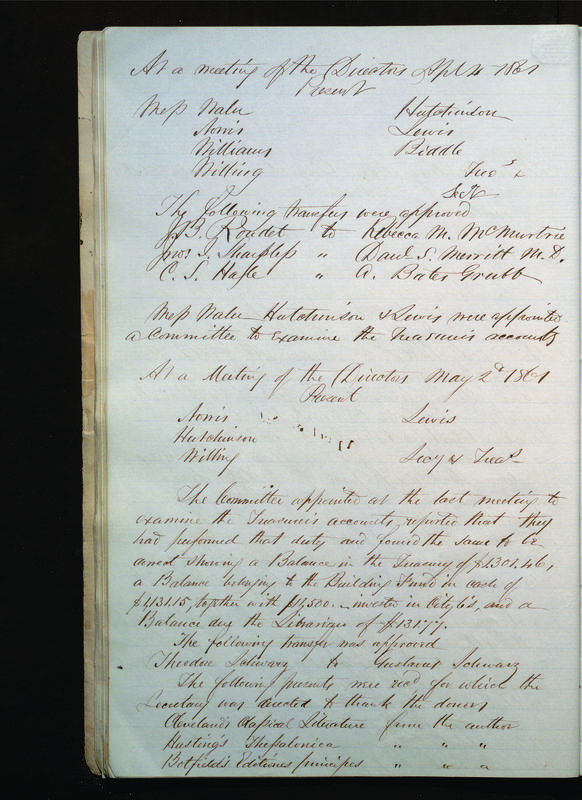 At a meeting of the Directors Apl 4 1861
Present
Mess Waln Hutchinson
Norris Lewis
Williams Biddle
Willing Treas &
Secy
The following transfers were approved
J. B. Roudet to Rebecca M. McMurtrie
Jnos J. Sharpless " Danl S. Merritt M. D.
C. S. Hagle " A. Bates Grubb
Mess Waln Hutchinson & Lewis were appointed
a Committee to examine the Treasurers accounts
At a Meeting of the Directors May 2d 1861
Present
Norris Lewis
Hutchinson
Willing Secy & Treas
The Committee appointed at the last meeting to
examine the Treasurers accounts, reported that they
had performed that duty and found the same to be
correct showing a Balance in the Treasury of $2301.46,
a Balance belonging to the Building Fund in cash of
$1,131.15, together with $11,500. invested in City 6's, and a
Balance due the Librarian of $131.77.
The following transfer was approved
Theodore Schwarz to Gustavus Schwarz
The following presents were recd for which the
Secretary was directed to thank the donors
Cleveland's Classical Literature from the author
Husting's Thessalonica " " "
Botfield's Editiones principes " " "